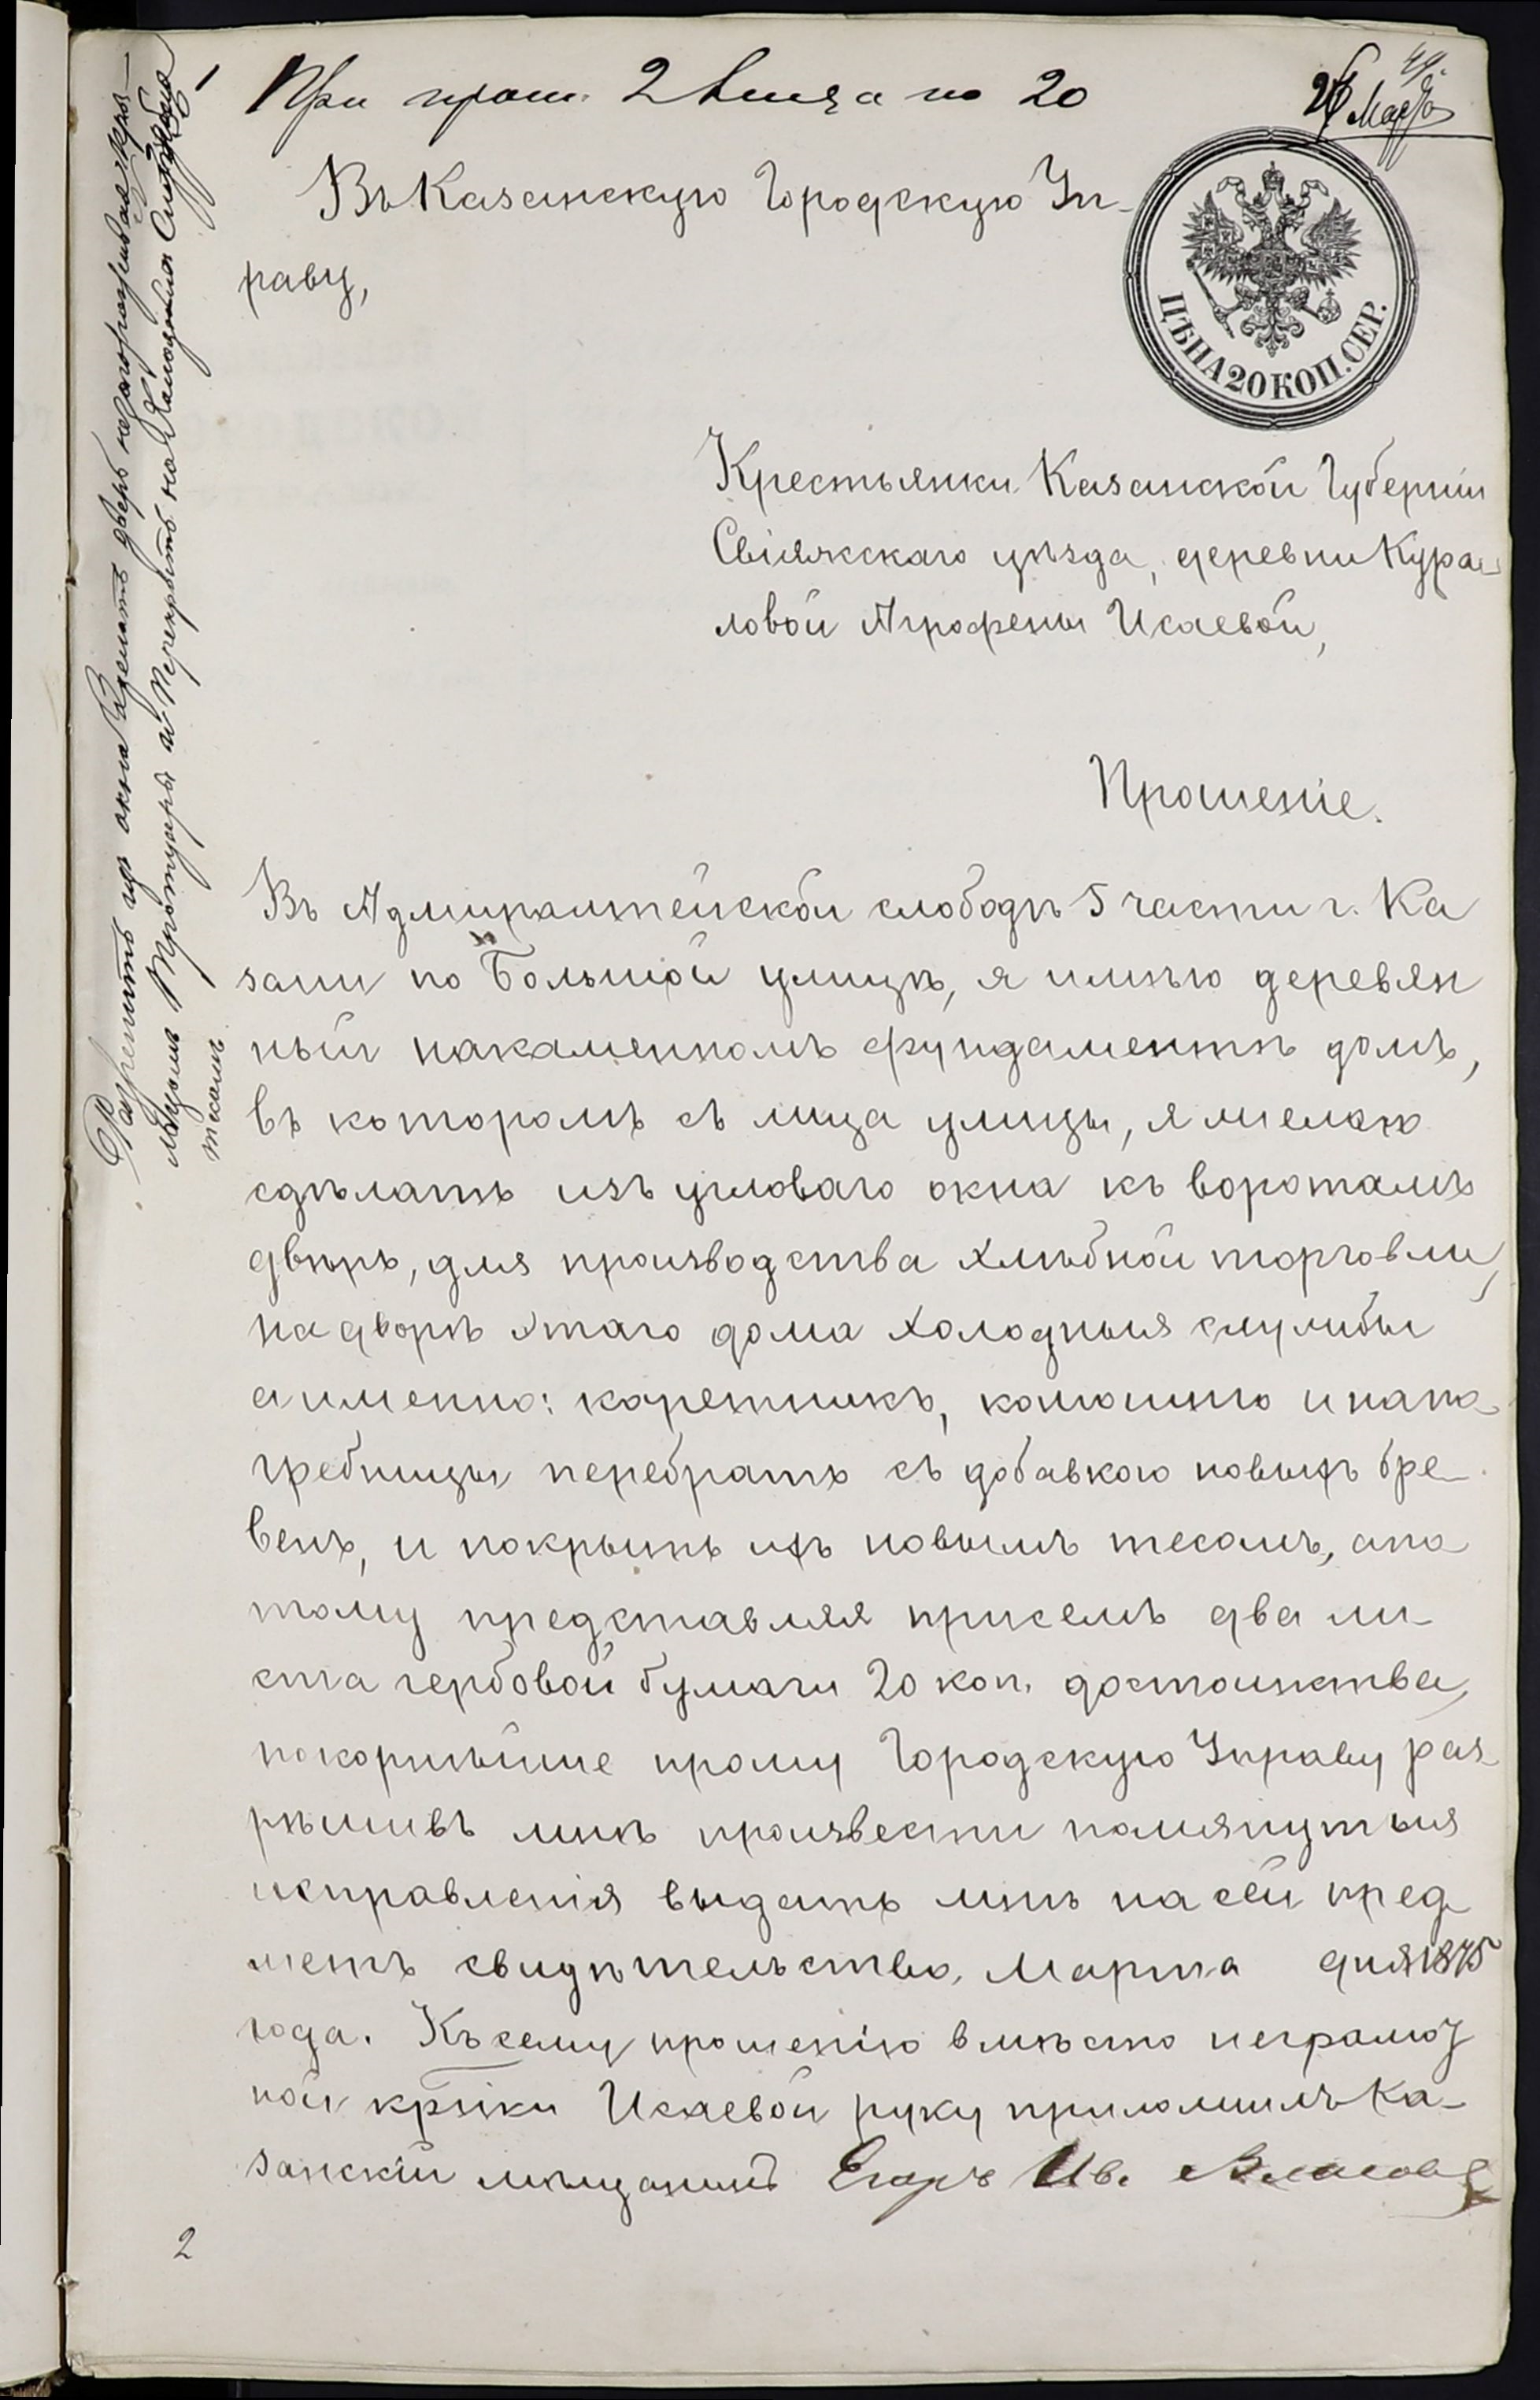 При прош. 2 листа по 20
26 Марта
Въ Казанскую Городскую Уп-
раву,
ЦѢНА 20 КОП. СЕР.
Крестьянки Казанской Губерніи
Свіяжскаго уѣзда, деревни Кура-
ловой Аграфены Исаевой,
Прошеніе.
Въ Адмиралтейской слободѣ 5 части г. Ка
зани по Большой улицѣ, я имѣю деревян
ный накаменномъ фундаментѣ домъ,
въ которомъ съ лица улицы, я желаю
сдѣлать изъ угловаго окна къ воротамъ
двѣрь, для производства хлѣбной торговли,
на дворѣ этаго дома холодныя службы
а именно: каретникъ, конюшню и напо-
гребницы перебрать съ добавкою новыхъ бре-
венъ, и покрыть ихъ новымъ тесомъ, а по
тому представляя присемъ два ли-
ста гербовой бумаги 20 коп. достоинства,
покорнѣйше прошу Городскую Управу раз
рѣшивъ мнѣ произвести помянутыя
исправленія выдать мнѣ на сей пред
метъ свидѣтельство, Марта дня 1875
года. Къ сему прошенію вмѣсто неграмот
ной кр̅нки Исаевой руку приложилъ Ка-
занскій мѣщанинъ Егоръ Ив. Власовъ
2
Разрешить изъ окна сделать дверь не загораживая кры-
льцомъ Тротуары и Перекрыть на Холодныя Службы
тесомъ